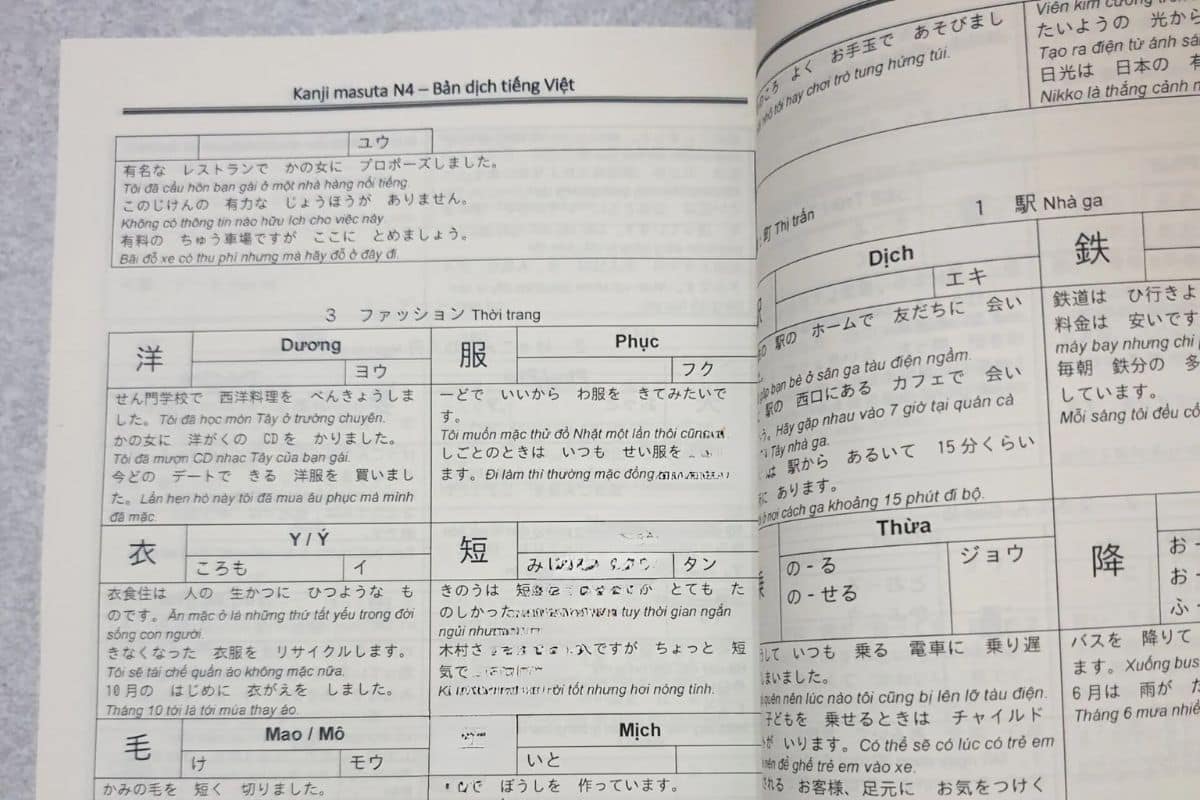 Kanji masuta N4 – Bản dịch tiếng Việt
ユウ
有名な レストランで かの女に プロポーズしました。
Tôi đã cầu hôn bạn gái ở một nhà hàng nổi tiếng
このじけんの 有力な じょうほうが ありません。
Không có thông tin nào hữu ích cho việc này
有料の ちゅう車場ですが ここに とめましょう。
Bãi đỗ xe có thu phí nhưng mà hãy đỗ ở đây đi.
3 ファッション Thời trang
洋 Dương
ヨウ
せん門学校で 西洋料理を べんきょうしま
した。Tôi đã học món Tây ở trường chuyên.
かの女に 洋がくの CDを かりました。
Tôi đã mượn CD nhạc Tây của bạn gái.
今どの デートで きる 洋服を 買いまし
た。Lần hẹn hò này tôi đã mua âu phục mà mình
đã mặc.
服 Phục
フク
一どで いいから わ服を きてみたいで
す。
Tôi muốn mặc thử đồ Nhật một lần thôi cũng
しごとのときは いつも せい服を
ます。Đi làm thì thường mặc đồng
衣 Y / Ý
ころも イ
衣食住は 人の 生かつに ひつような も
のです。Ăn mặc ở là những thứ tất yếu trong đời
sống con người.
きなくなった 衣服を リサイクルします。
Tôi sẽ tái chế quần áo không mặc nữa.
10月の はじめに 衣がえを しました。
Tháng 10 tới là tới mùa thay áo.
短
み タン
きのうは 短 とても た
のしかった tuy thời gian ngắn
ngủi như
木村さ ですが ちょっと 短
気で
Ki rồi tốt nhưng hơi nóng tính.
毛 Mao / Mô
け モウ
かみの毛を 短く 切りました。
Mịch
いと
で ぼうしを 作っています。
ころ よく お手玉で あそびまし
nhỏ tôi hay chơi trò tung hứng túi.
Viên kim cương
たいようの 光から
Tạo ra điện từ ánh sá
日光は 日本の 有
Nikko là thắng cảnh n
町 Thị trấn
1 駅 Nhà ga
Dịch
エキ
駅の ホームで 友だちに 会い
gặp bạn bè ở sân ga tàu điện ngầm.
駅の 西口にある カフェで 会い
Hãy gặp nhau vào 7 giờ tại quán cà
Tây nhà ga.
は 駅から あるいて 15分くらい
に あります。
ở nơi cách ga khoảng 15 phút đi bộ.
鉄
鉄道は ひ行きよ
料金は 安いです
máy bay nhưng chi
毎朝 鉄分の 多
しています。
Mỗi sáng tôi đều cố
Thừa
の - る ジョウ
の - せる
して いつも 乗る 電車に 乗り遅
まいました。
quên nên lúc nào tôi cũng bị lên lỡ tàu điện.
子どもを 乗せるときは チャイルド
が いります。Có thể sẽ có lúc có trẻ em
nên để ghế trẻ em vào xe.
される お客様、足元に お気をつけく
降
お -
お -
ふ
バスを 降りて
ます。Xuống bus
6月は 雨が た
Tháng 6 mưa nhiề